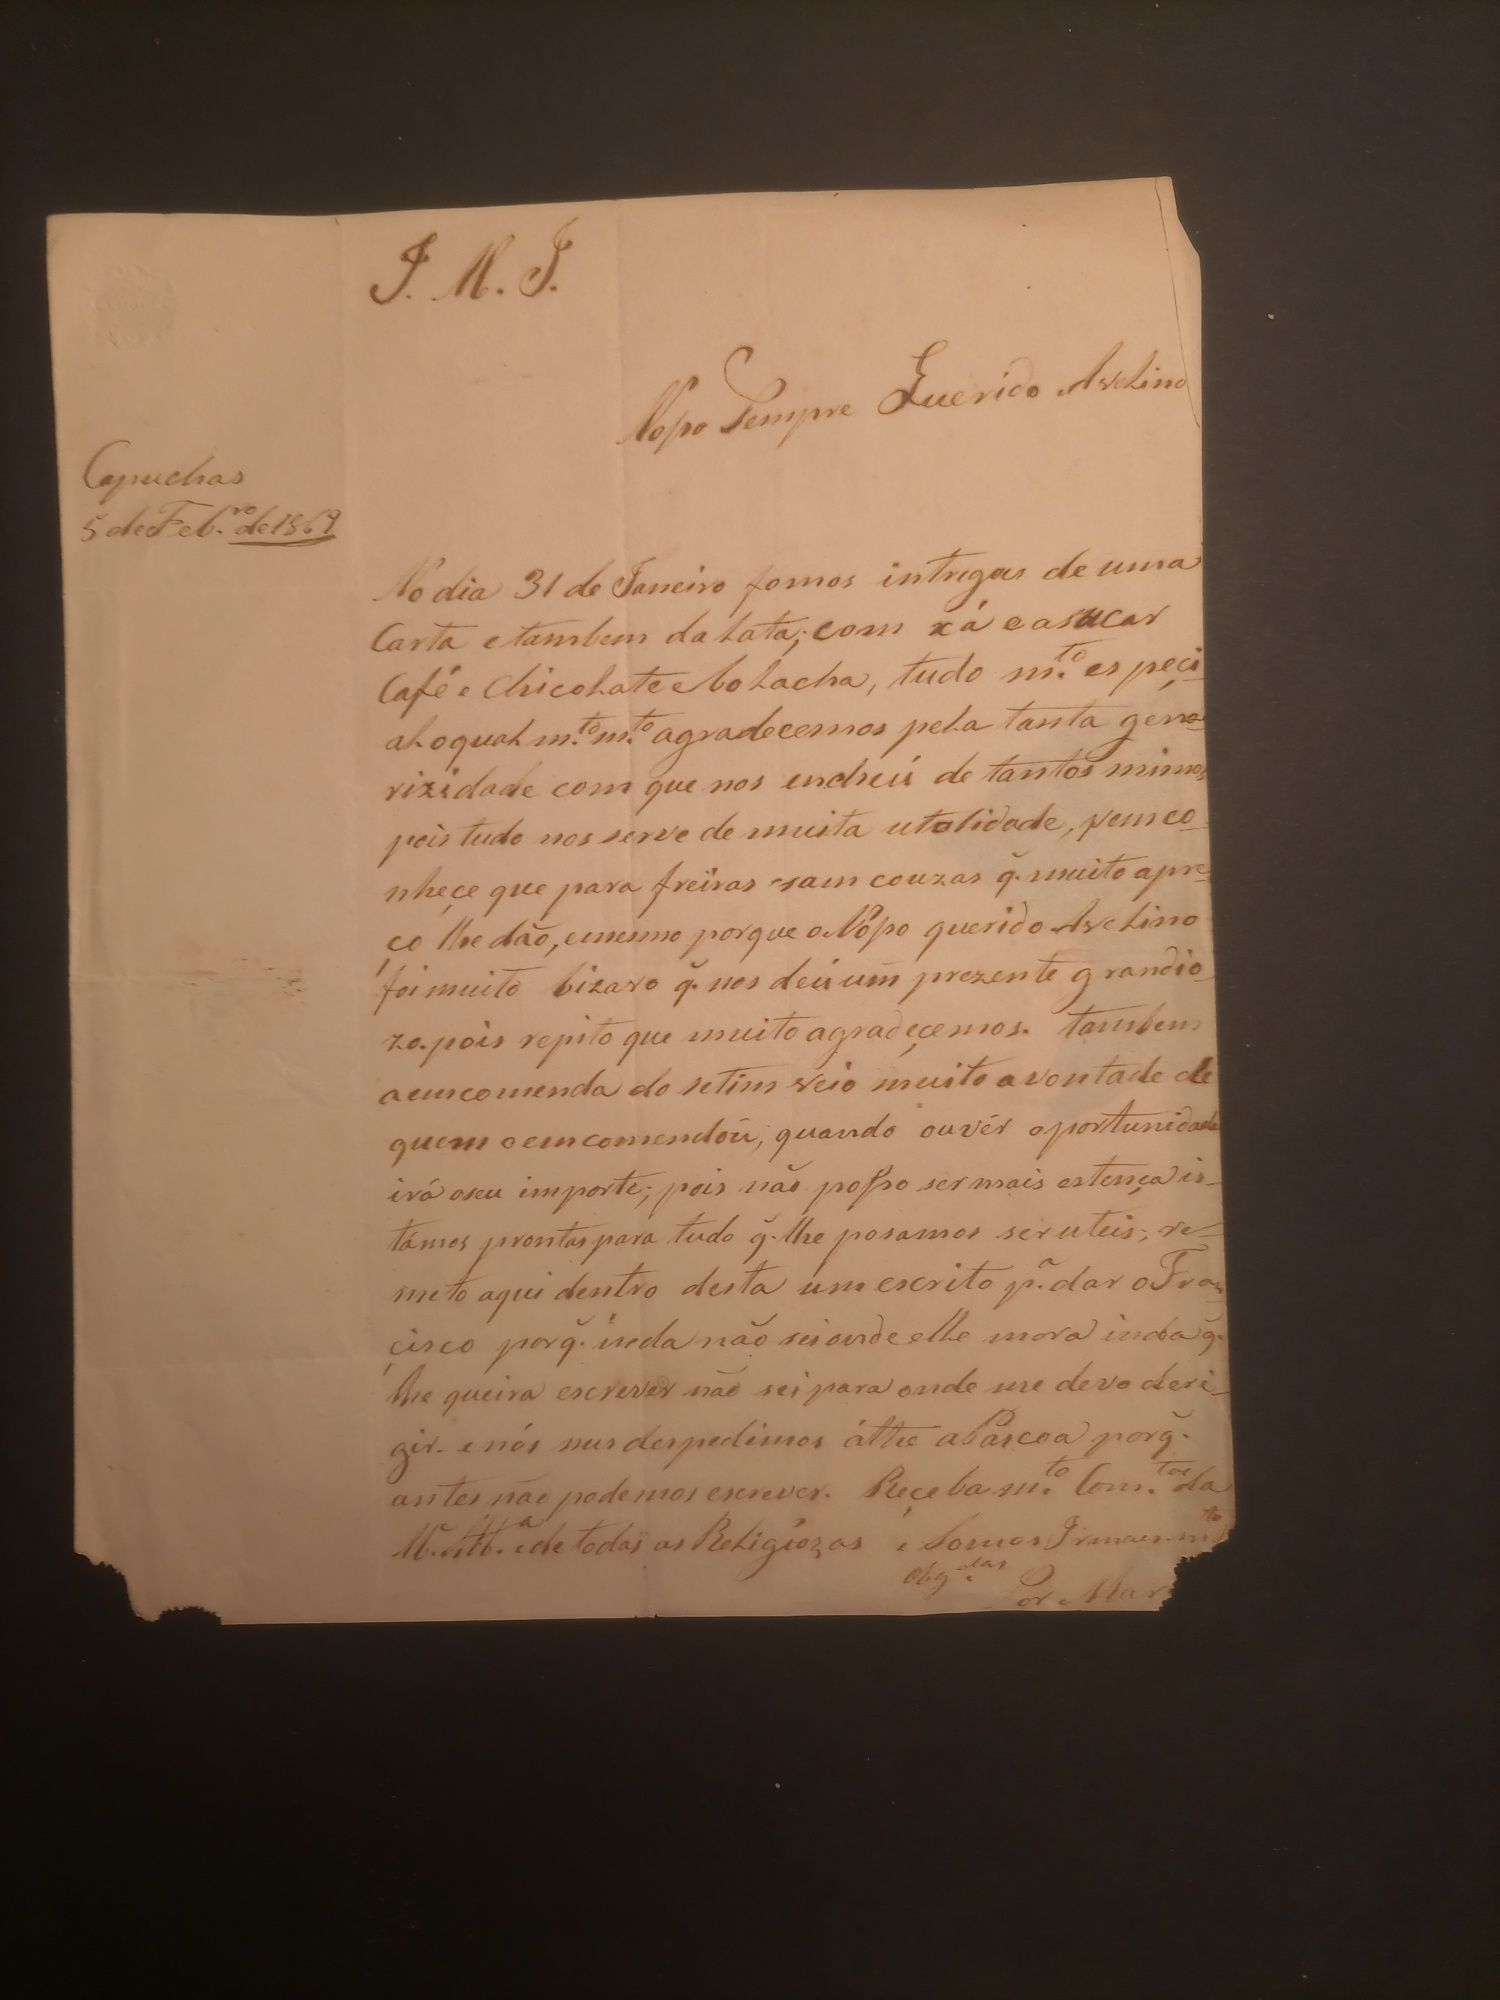 J. M. J.
Nosso Sempre Querido Avelino
Capuchas
5 de Feb.ro de 1869
No dia 31 de Janeiro fomos intregas de uma
Carta e tambem da lata; com xá e asucar
Café e Chicolate e bolacha, tudo m.to espeçi-
al o qual m.to m.to agradecemos pela tanta gene-
rizidade com que nos encheú de tantos mimos
pois tudo nos serve de muita utelidade, vem co-
nheçe que para freiras sam couzas q̃. muito apre-
ço lhe dão, e mesmo porque o Nosso querido Avelino
foi muito bizaro q̃. nos deú um prezente grandio-
zo. pois repito que muito agradeçemos. tambem
a emcomenda do setim veio muito a vontade de
quem o emcomendou, quando ouvér oportunidade
irá o seu importe; pois não posso ser mais estença is-
támos prontas para tudo q̃. lhe posamos ser uteis; re-
meto aqui dentro desta um escrito p.a dar o Fran-
çisco porq̃. inda não sei onde elle mora inda q̃.
lhe queira escrever não sei para onde me devo deri-
gir. e nós nus despedimos áthe a Páscoa porq̃.
antes não podemos escrever. Reçeba m.to Com.tos da
M. M.a e de todas as Religiozas e Somos Irmaes m.to
Obg.das
Por Mar